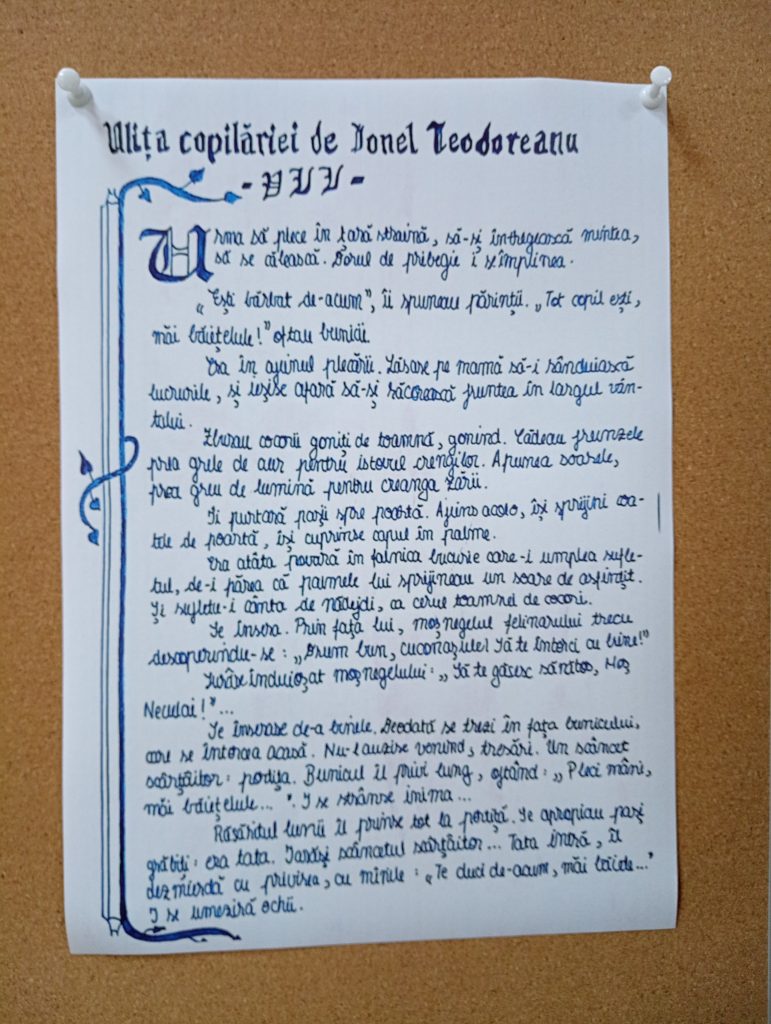 Ulița copilăriei de Ionel Teodoreanu
- VII -
Urma să plece în țară straină, să-și întregească mintea,
să se călească. Dorul de pribegie i se împlinea.
„Ești bărbat de-acum”, îi spuneau părinții. „Tot copil ești,
măi băiețelule!” oftau bunicii.
Era în ajunul plecării. Lăsase pe mamă să-i rânduiască
lucrurile, și ieșise afară să-și răcorească fruntea în largul vân-
tului.
Zburau cocorii goniți de toamnă, gonind. Cădeau frunzele
prea grele de aur pentru istovul crengilor. Apunea soarele,
prea greu de lumină pentru creanga zării.
Îi purtară pașii spre poartă. Ajuns acolo, își sprijini coa-
tele de poartă, își cuprinse capul în palme.
Era atâta povară în falnica bucurie care-i umplea sufle-
tul, de-i părea că palmele lui sprijineau un soare de asfințit.
Și sufletu-i cânta de nădejdi, ca cerul toamnei de cocori.
Se însera. Prin fața lui, moșnegelul felinarului trecu
descoperindu-se: „Drum bun, cuconașule! Să te întorci cu bine!”
Surâse înduioșat moșnegelului: „Să te găsesc sănătos, Moș
Neculai!”...
Se înserase de-a binele. Deodată se trezi în fața bunicului,
care se întorcea acasă. Nu-l auzise venind, tresări. Un scâncet
scârțâitor: portița. Bunicul îl privi lung, oftând: „Pleci mâni,
măi băiețelule...”. I se strânse inima...
Răsăritul lunii îl prinse tot la portiță. Se apropiau pași
grăbiți: era tata. Iarăși scâncetul scârțâitor... Tata intră, îl
dezmierdă cu privirea, cu mînile: „Te duci de-acum, măi băiete...”
I se umeziră ochii.